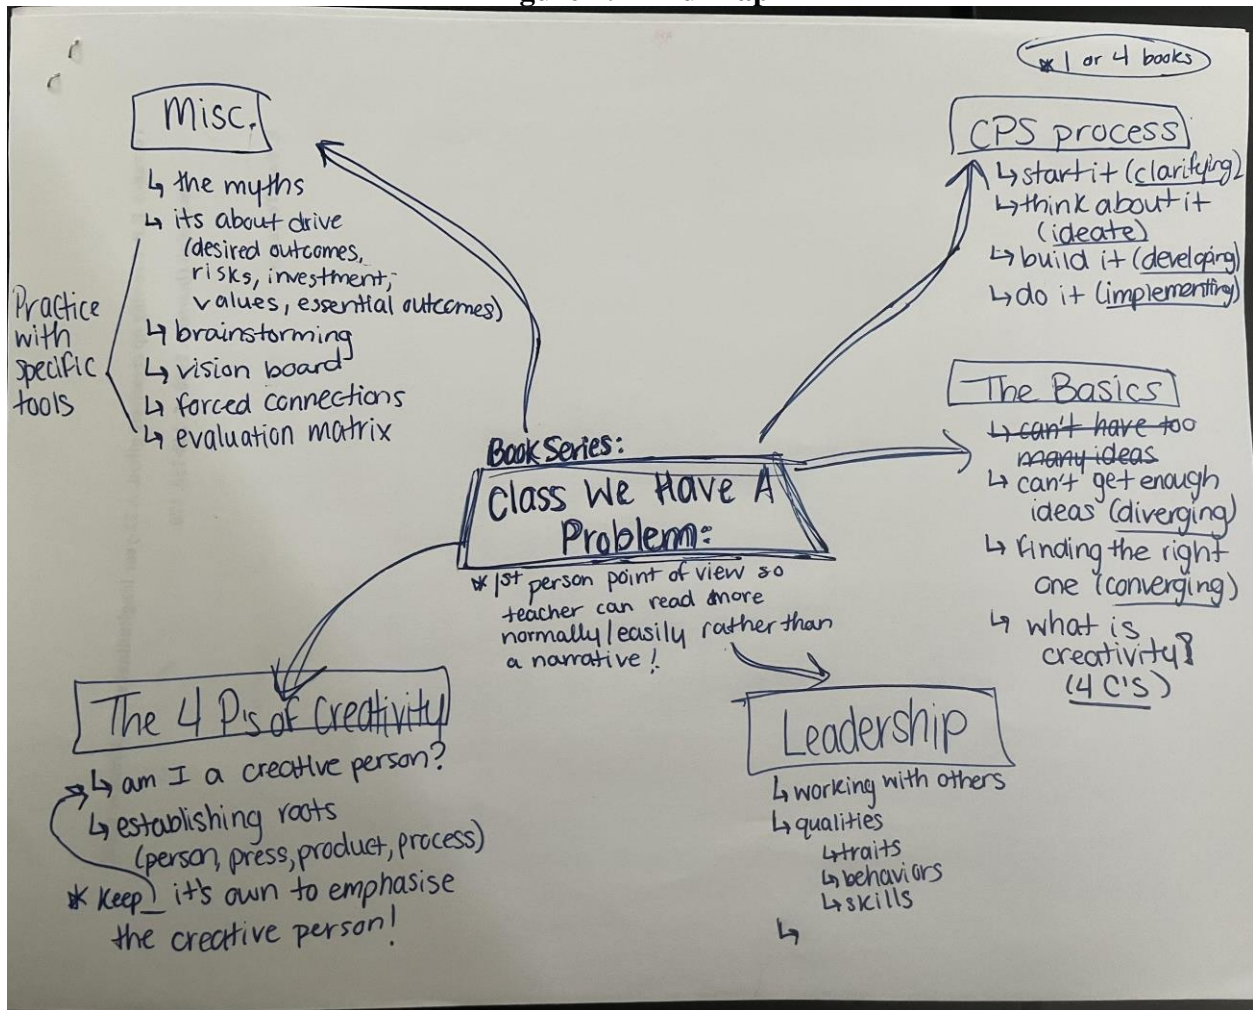 * 1 or 4 books
Misc.
↳ the myths
↳ its about drive
(desired outcomes,
risks, investment,
values, essential outcomes)
↳ brainstorming
↳ vision board
↳ forced connections
↳ evaluation matrix
Practice
with
specific
tools
CPS process
↳ start it (clarifying)
↳ think about it
(ideate)
↳ build it (developing)
↳ do it (implementing)
The Basics
↳ can't have too
many ideas
↳ can't get enough
ideas (diverging)
↳ finding the right
one (converging)
↳ what is
creativity?
(4 C's)
Book Series:
Class We Have A
Problem:
* 1st person point of view so
teacher can read more
normally/easily rather than
a narrative!
The 4 P's of Creativity
↳ am I a creative person?
↳ establishing roots
(person, press, product, process)
* Keep _ it's own to emphasise
the creative person!
Leadership
↳ working with others
↳ qualities
↳ traits
↳ behaviors
↳ skills
↳